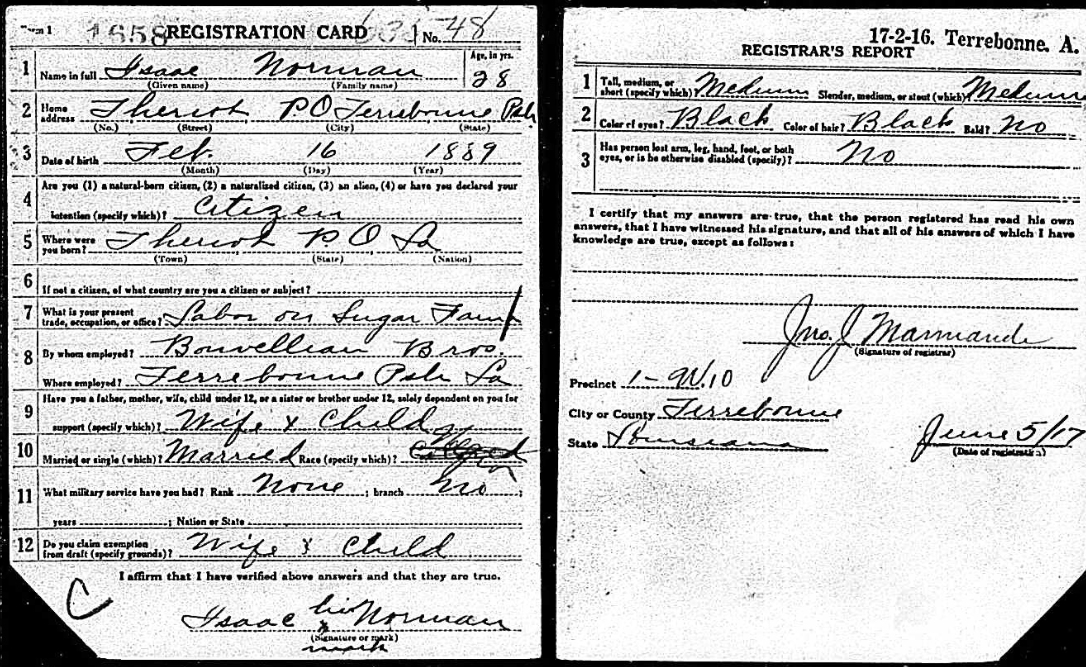 Form 1
1658 REGISTRATION CARD No. 48
1 Name in full Isaac Norman Age, in yrs. 28
(Given name) (Family name)
2 Home address Theriot P.O Terrebonne Psh
(No.) (Street) (City) (State)
3 Date of birth Feb. 16 1889
(Month) (Day) (Year)
4 Are you (1) a natural-born citizen, (2) a naturalized citizen, (3) an alien, (4) or have you declared your
intention (specify which)? Citizen
5 Where were you born? Theriot P.O La
(Town) (State) (Nation)
6 If not a citizen, of what country are you a citizen or subject?
7 What is your present trade, occupation, or office? Labor on Sugar Farm
8 By whom employed? Bros.
Where employed? Terrebonne Psh La
9 Have you a father, mother, wife, child under 12, or a sister or brother under 12, solely dependent on you for
support (specify which)? Wife & Child
10 Married or single (which)? Married Race (specify which)?
11 What military service have you had? Rank None ; branch No ;
years ; Nation or State
12 Do you claim exemption from draft (specify grounds)? Wife & Child
I affirm that I have verified above answers and that they are true.
C
Isaac his x Norman
(Signature or mark)
mark
17-2-16. Terrebonne. A.
REGISTRAR'S REPORT
1 Tall, medium, or short (specify which)? Medium Slender, medium, or stout (which)? Medium
2 Color of eyes? Black Color of hair? Black Bald? No
3 Has person lost arm, leg, hand, foot, or both eyes, or is he otherwise disabled (specify)? No
I certify that my answers are true, that the person registered has read his own
answers, that I have witnessed his signature, and that all of his answers of which I have
knowledge are true, except as follows:
Jno. J Marmande
(Signature of registrar)
Precinct 1-W.10
City or County Terrebonne
State Louisiana
June 5/17
(Date of registration)